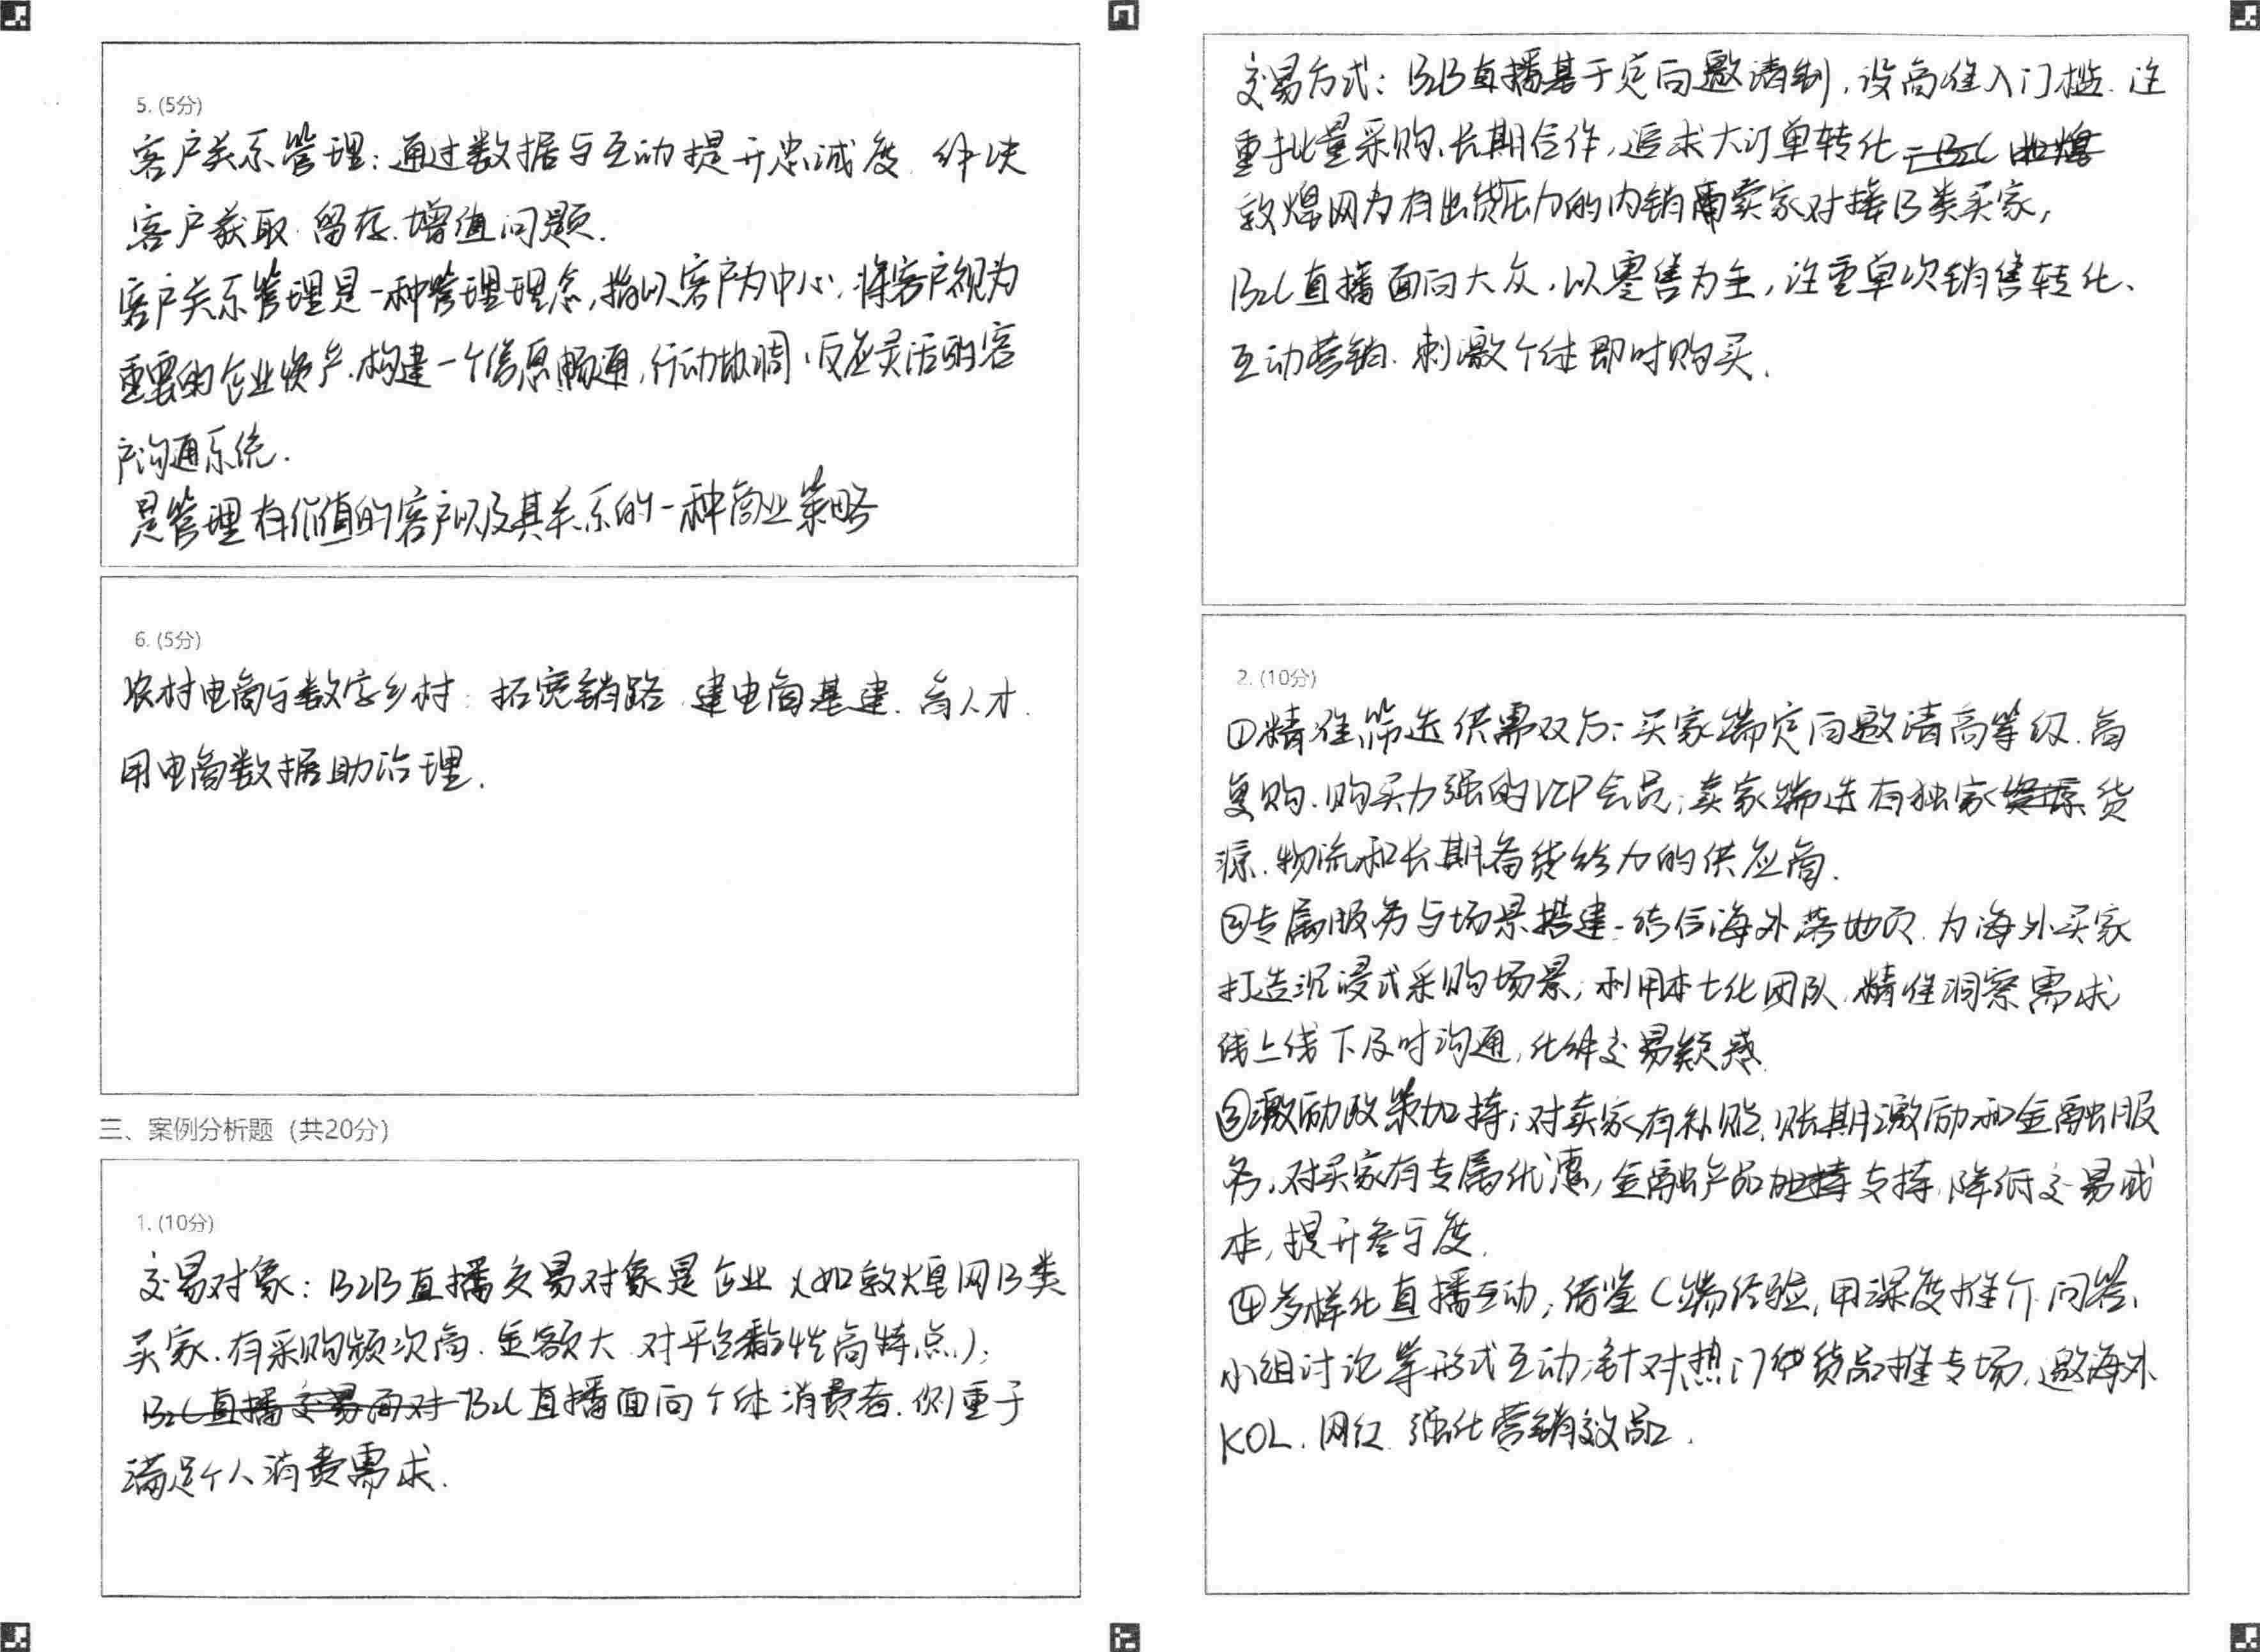 5. (5分)
客户关系管理：通过数据与互动提升忠诚度、解决
客户获取、留存、增值问题.
客户关系管理是一种管理理念,指以客户为中心,将客户视为
重要的企业资产,构建一个信息畅通,行动协调,反应灵活的客
户沟通系统.
是管理有价值的客户以及其关系的一种商业策略
6. (5分)
农村电商与数字乡村：拓宽销路、建电商基建、育人才、
用电商数据助治理.
三、案例分析题（共20分）
1. (10分)
交易对象：B2B直播交易对象是企业（如敦煌网B类
买家、有采购频次高、金额大、对平台黏性高特点）；
B2C直播面向个体消费者、侧重于
满足个人消费需求.
交易方式：B2B直播基于定向邀请制,设高准入门槛、注
重批量采购、长期合作,追求大订单转化
敦煌网为有出货压力的内销卖家对接B类买家,
B2C直播面向大众,以零售为主,注重单次销售转化、
互动营销、刺激个体即时购买.
2. (10分)
①精准筛选供需双方：买家端定向邀请高等级、高
复购、购买力强的VIP会员；卖家端选有独家货
源、物流和长期备货给力的供应商.
②专属服务与场景搭建-结合海外落地页、为海外买家
打造沉浸式采购场景；利用本土化团队,精准洞察需求
线上线下及时沟通,化解交易疑惑.
③激励政策加持；对卖家有补贴、账期激励和金融服
务,对买家有专属优惠,金融产品支持,降低交易成
本,提升参与度.
④多样化直播互动；借鉴C端经验,用深度推介、问答、
小组讨论等形式互动；针对热门货品推专场,邀海外
KOL、网红、强化营销效品.